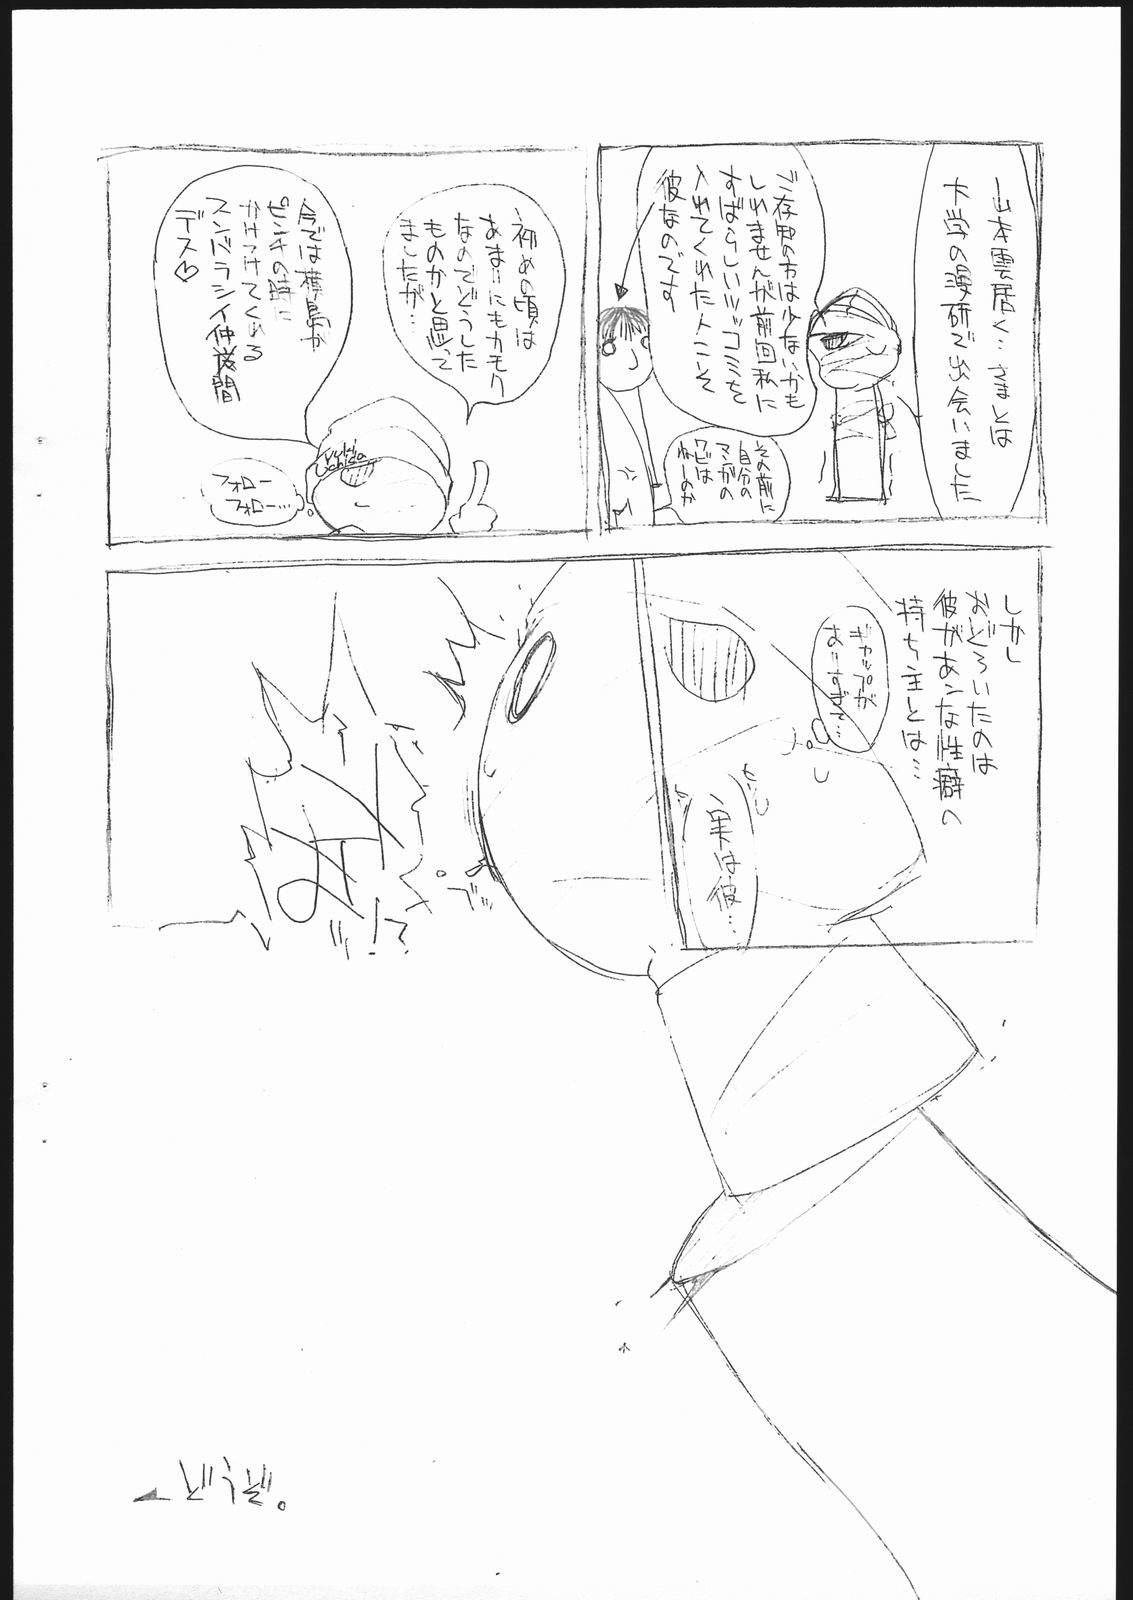 山本雲居く…さまとは
大学の漫研で出会いました
ご存知の方は少ないかも
しれませんが前回私に
すばらしいツッコミを
入れてくれた人こそ
彼なのです
その前に
自分の
マンガの
ねーのか
初めの頃は
あまりにもカモク
なのでどうした
ものかと思って
ましたが…
今では
ピンチの時に
かけつけてくれる
スンバラシイ仲間
デス♡
Yuki
Uchida
フォロー
フォロー…
しかし
おどろいたのは
彼があンな性癖の
持ち主とは…
ギャップが
ありすぎて…
実は彼…
どうぞ。